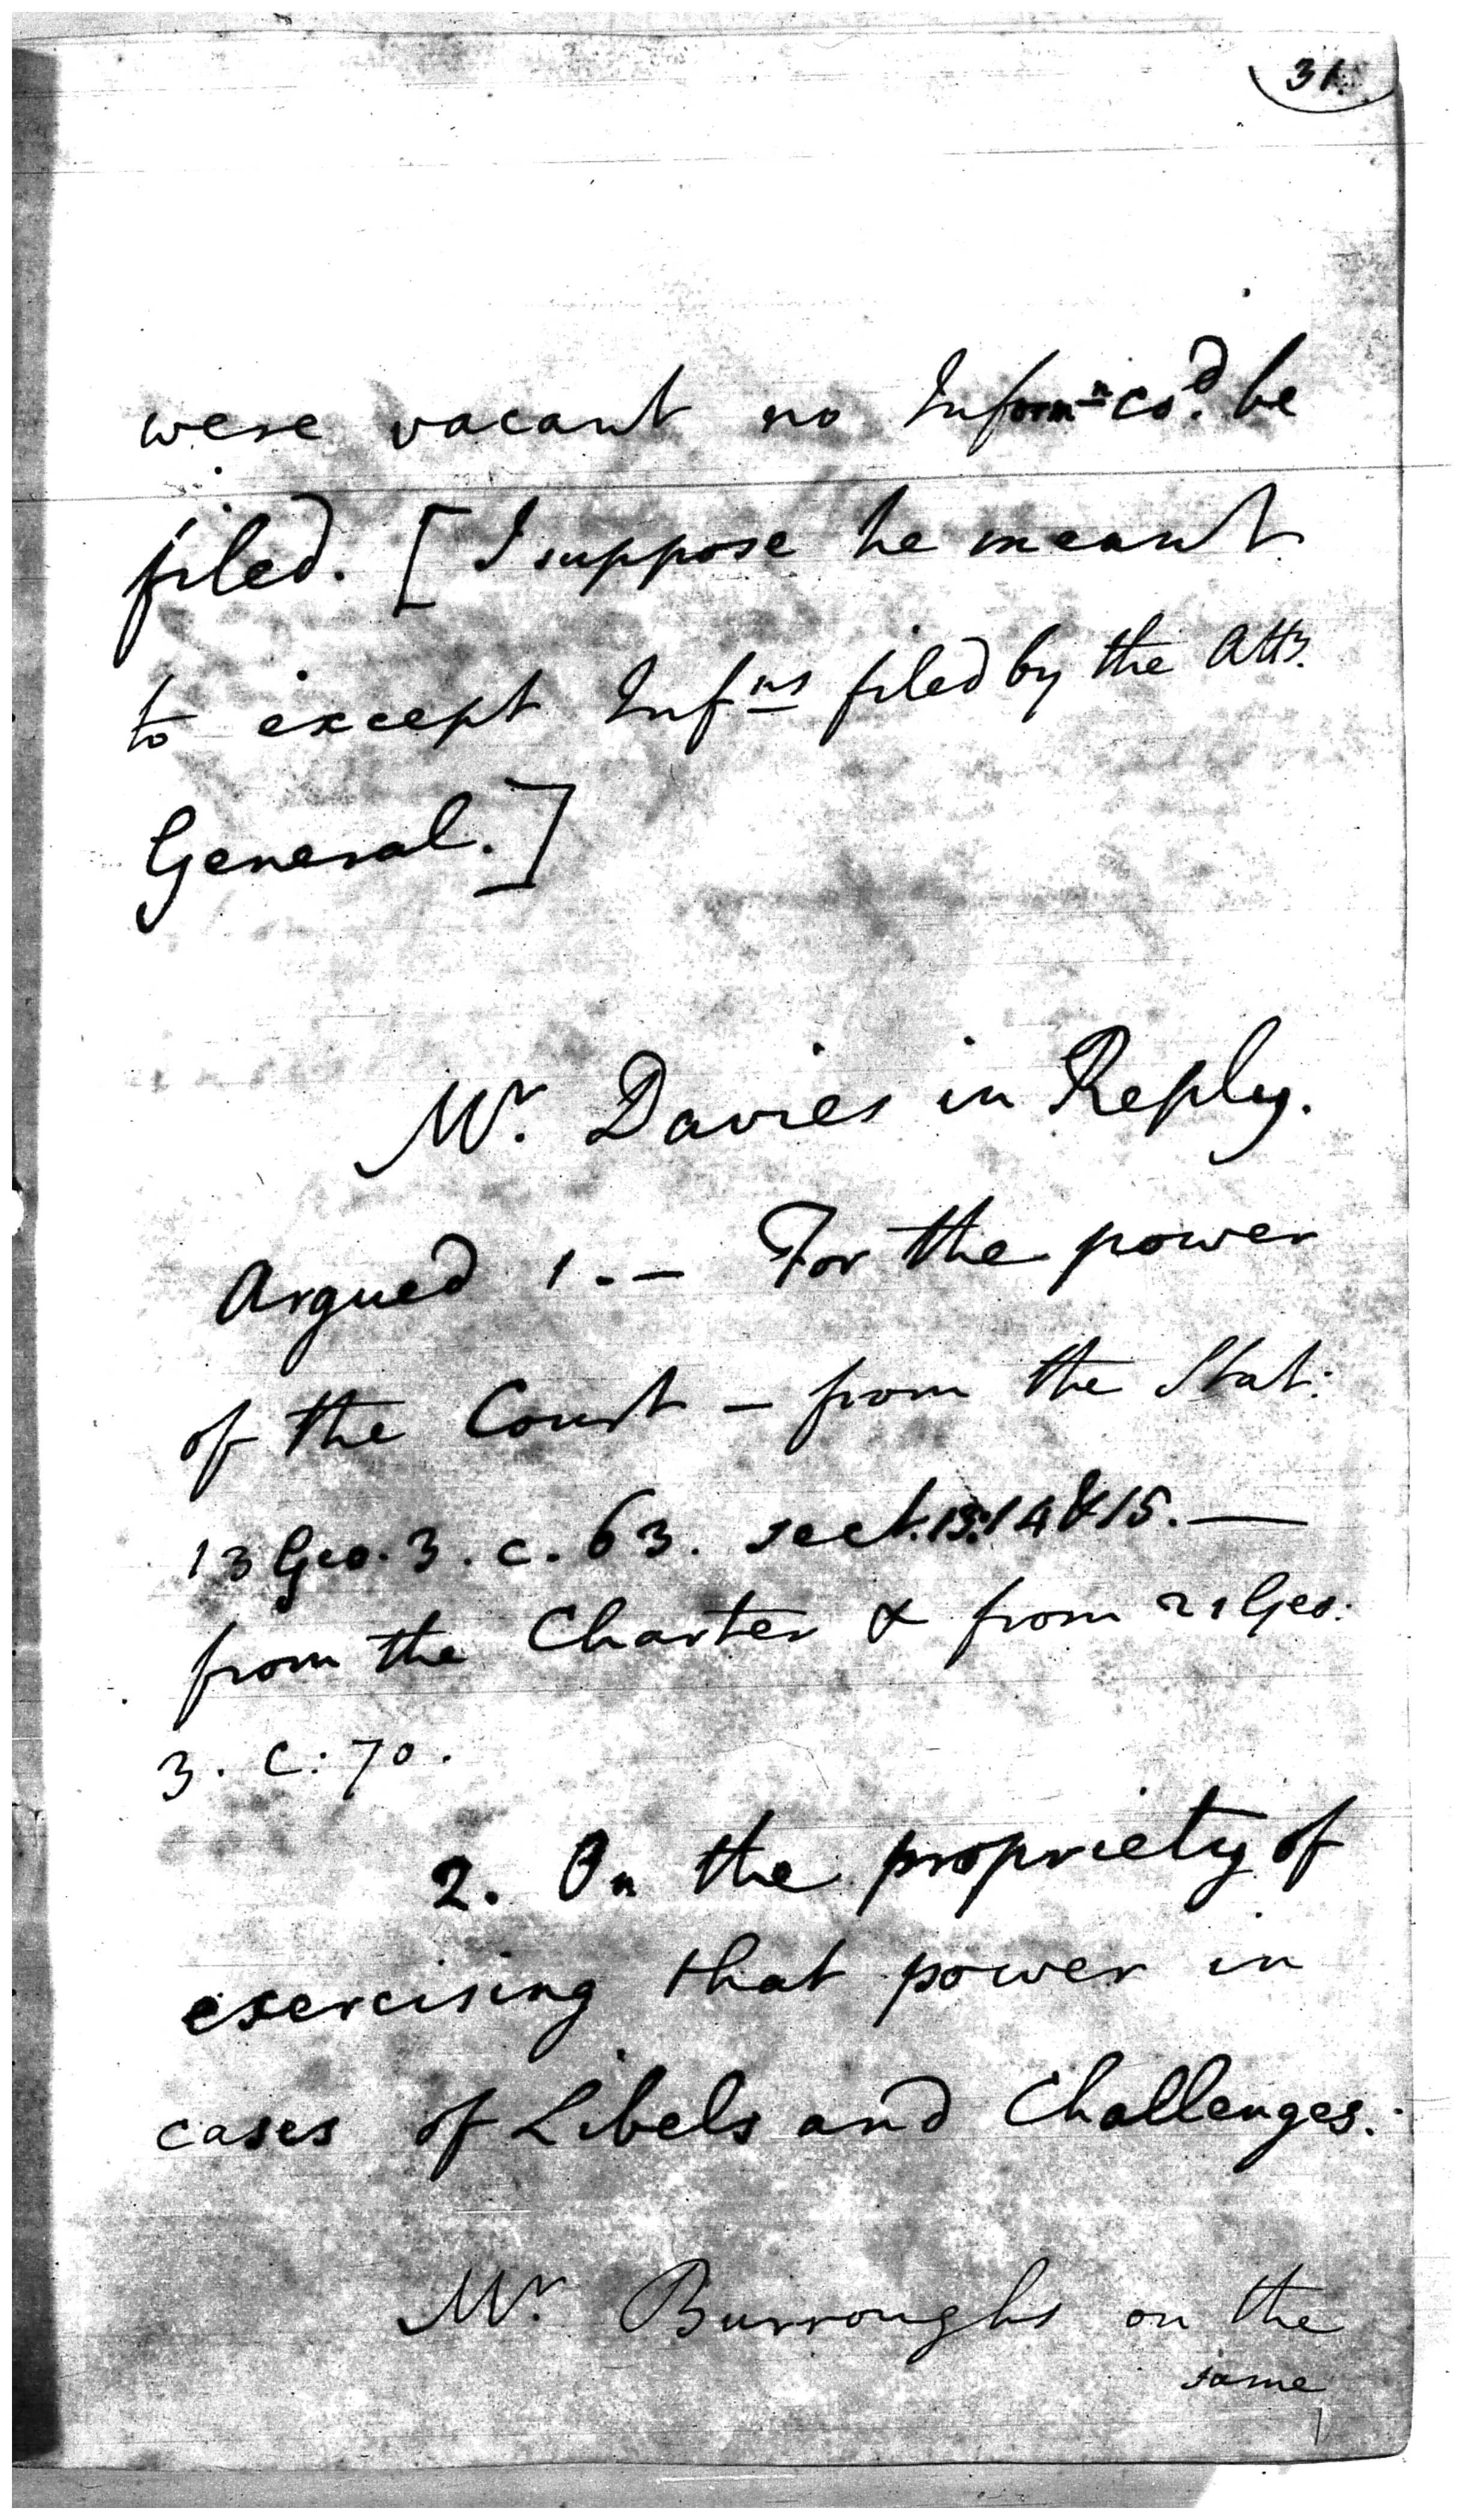 31
were vacant no Informn. cod. be
filed. [I suppose he meant
to except Infns filed by the Atty.
General.]
Mr. Davies in Reply.
Argued 1. — For the power
of the Court — from the Stat:
13 Geo. 3. c. 63. sect. 13. 14 & 15. —
from the Charter & from 21 Geo:
3. C: 70.
2. On the propriety of
exercising that power in
cases of Libels and Challenges.
Mr. Burroughs on the
same